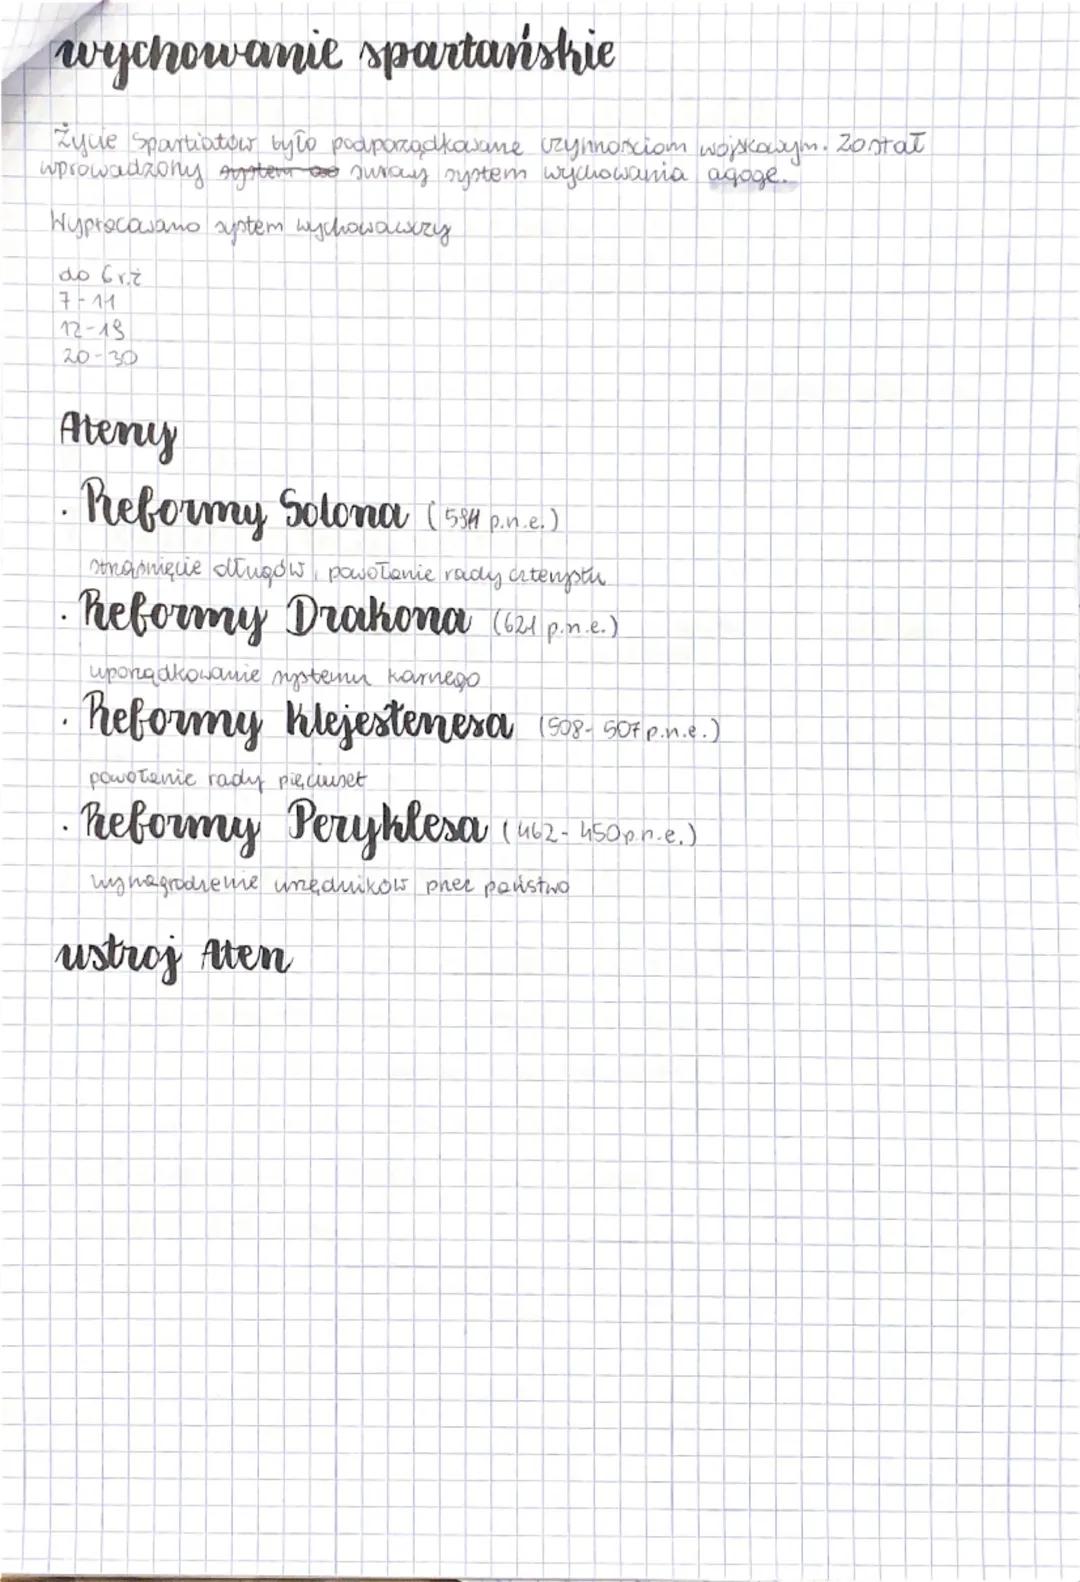 wychowanie spartańskie
Życie Spartiatów było podporządkowane czynnościom wojskowym. Został
wprowadzony system surowy system wychowania agoge.
Wypracowano system wychowawczy
do 6 r.ż
7-11
12-19
20-30
Ateny
· Reformy Solona (594 p.n.e.)
strząśnięcie długów, powołanie rady czterystu
· Reformy Drakona (621 p.n.e.)
uporządkowanie systemu karnego
· Reformy Klejestenesa (508-507 p.n.e.)
powołanie rady pięciuset
· Reformy Peryklesa (462-450 p.n.e.)
wynagrodzenie urzędników przez państwo
ustroj Aten